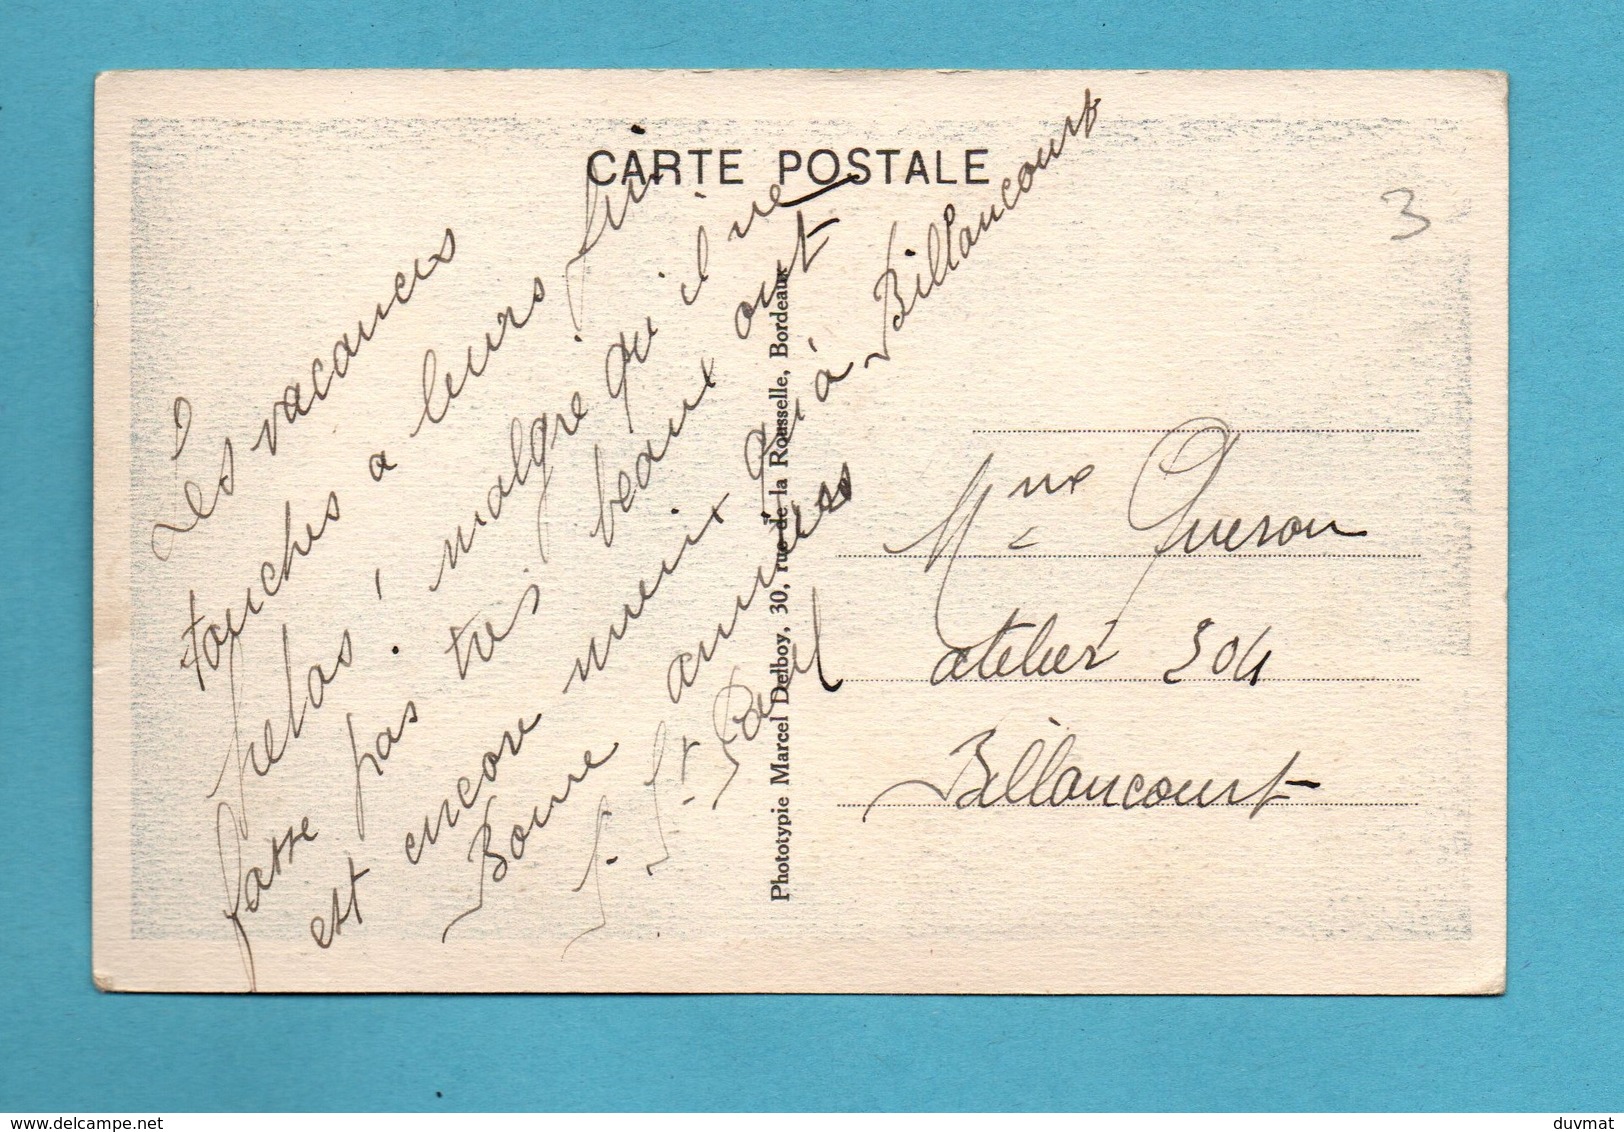 CARTE POSTALE
3
Les vacances
touches a leurs fin
helas! malgre qu'il ne
fasse pas tres beaux ont
est encore mieux qu'à Billancourt
Bonne années
St Paul
Phototypie Marcel Delboy, 30, rue de la Rousselle, Bordeaux
Mme Queron
atelier 304
Billancourt
duvmat